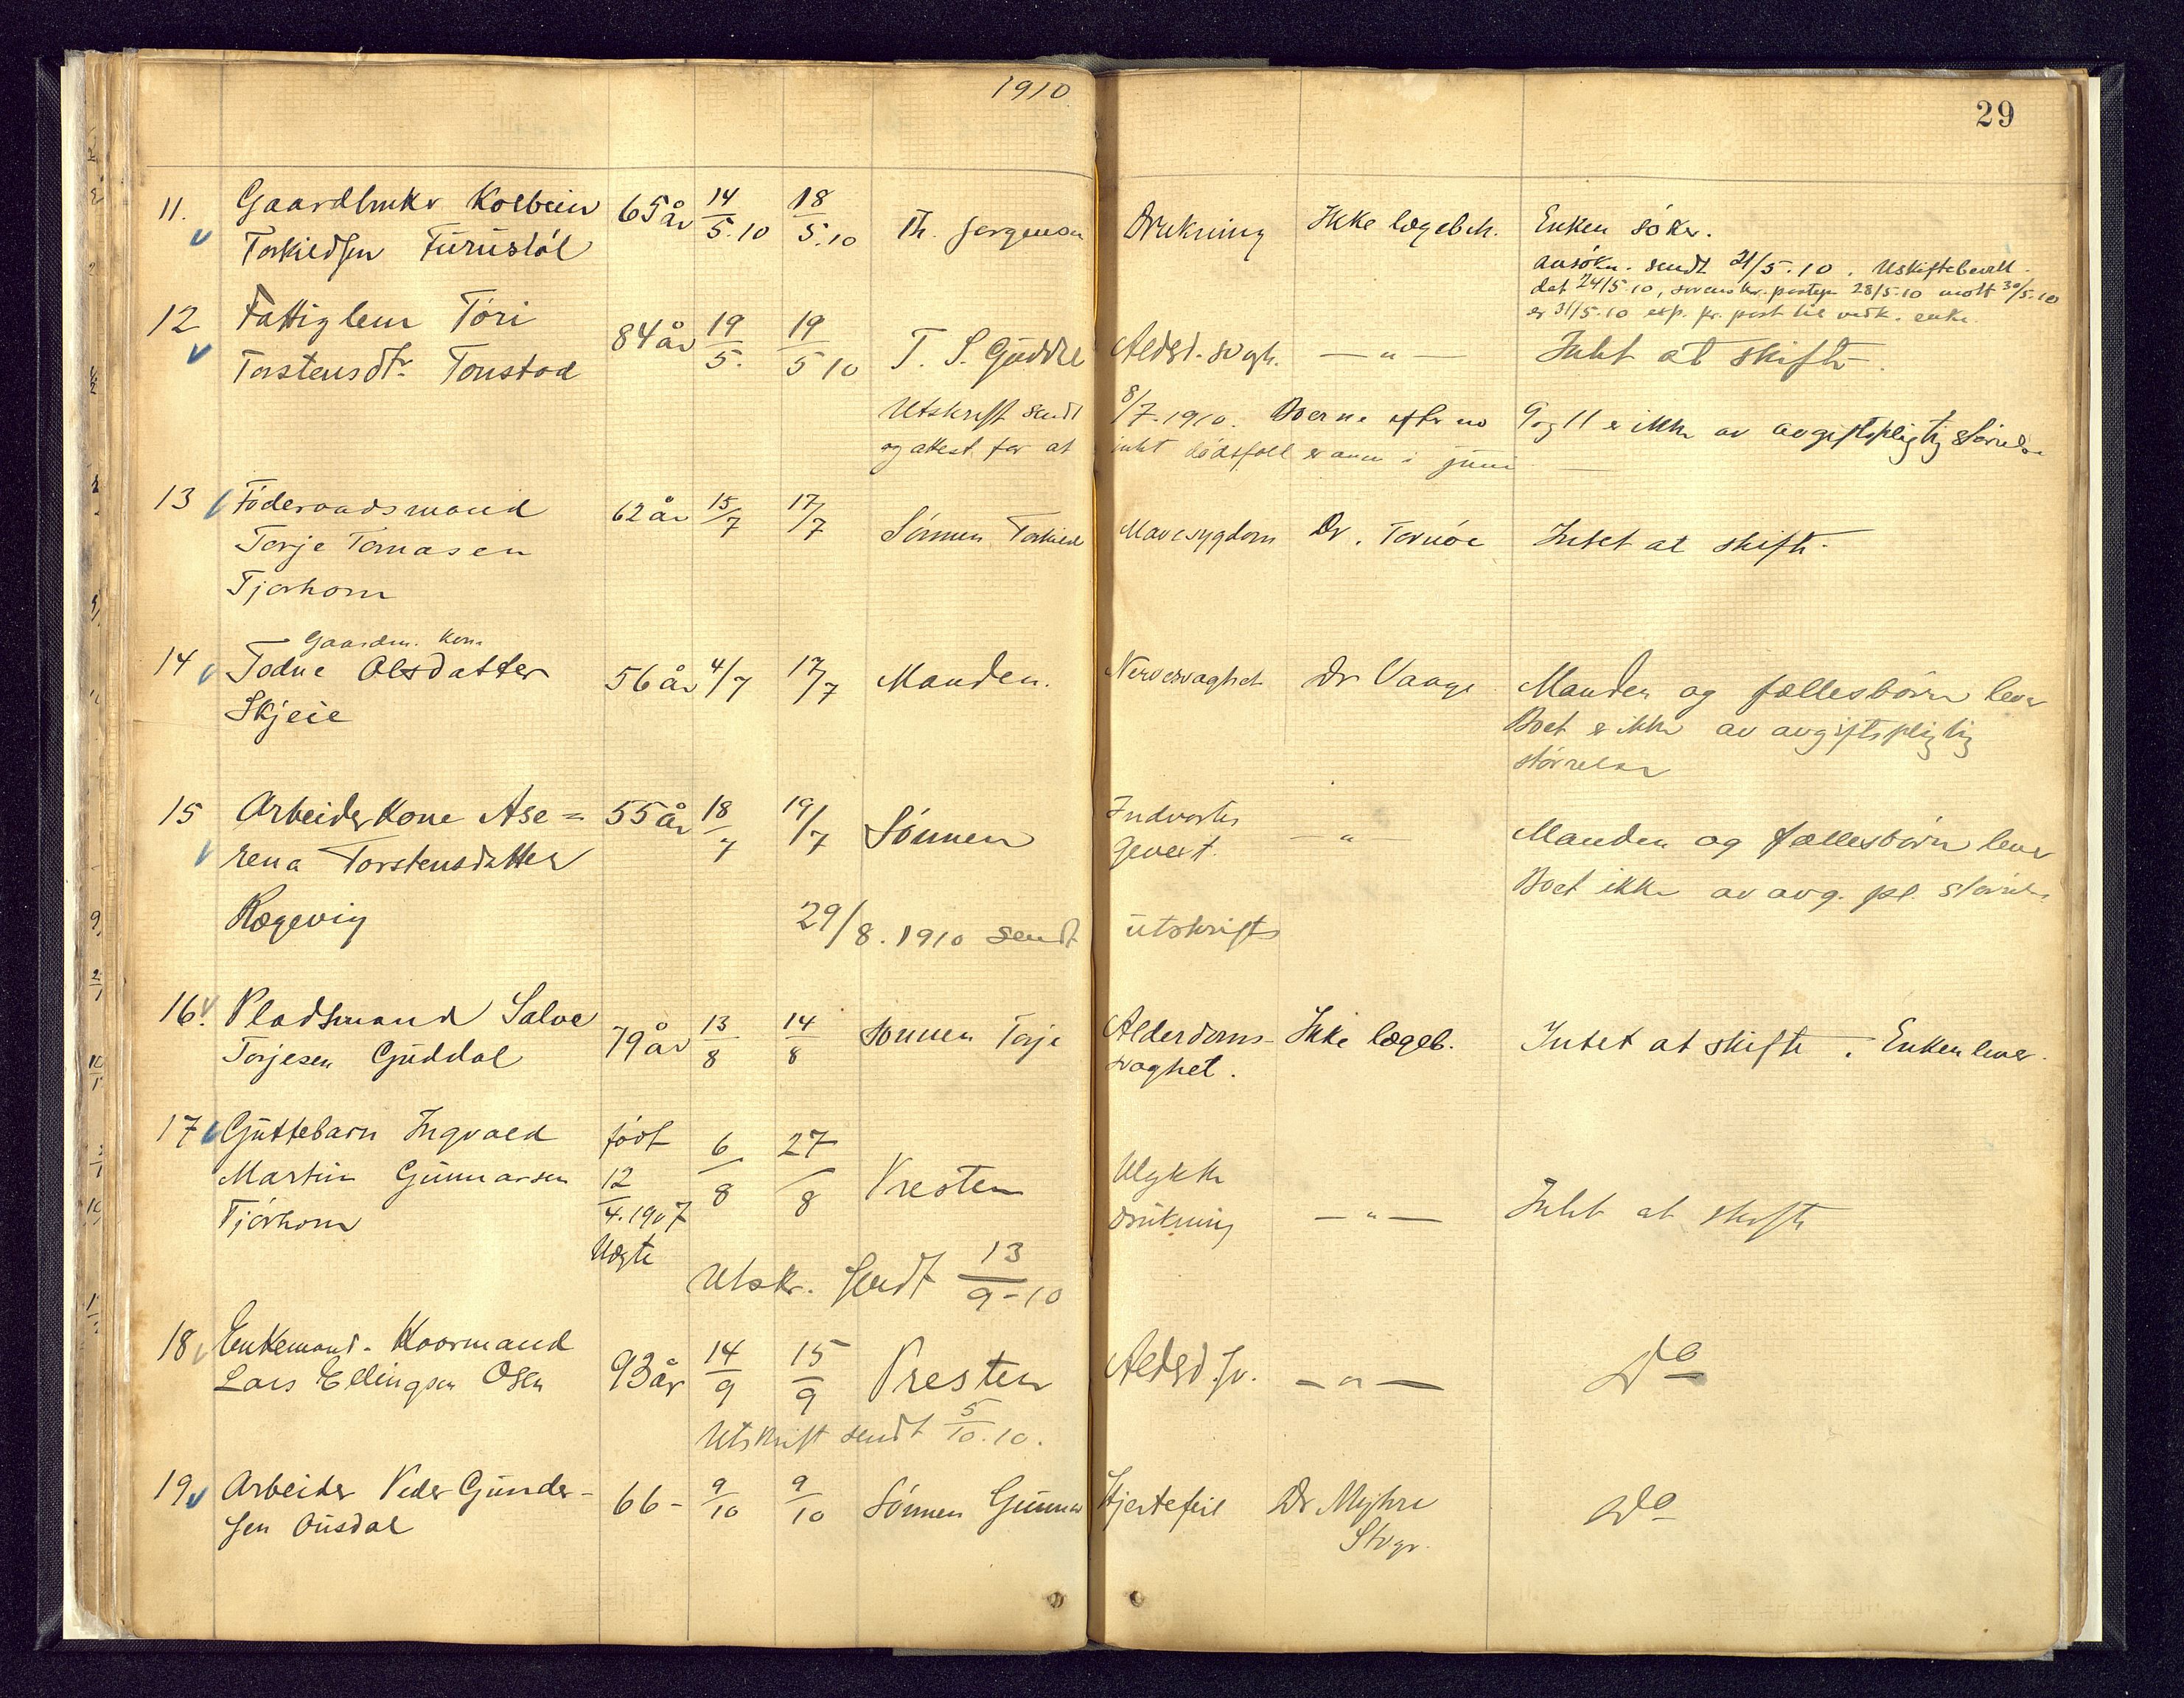 1910
29
11. Gaardbruker Kolbein 65 år 14/5.10 18/5.10 Th. Jørgensen Drukning Ikke lægebeh. Enken söker.
Torkildsen Furustöl
Ansökn. sendt 21/5.10. Uskiftebevill.
dat 24/5.10, 28/5.10 mott 30/5.10
er 31/5.10 exp. pr. post til vedk. enke.
12 Fattiglem Tori 84 år 19/5. 19/5 10 T. S. Guddal Aldsd. svagh. — " — Intet at skifte.
Torstensdtr. Tonstad
Utskrift sendt 8/7.1910. Boerne efter no 9 og 11 er ikke av avgiftspligtig störrelse
og attest for at intet dödsfall er anm i juni —
13 Föderaadsmand 62 år 15/7 17/7 Sönnen Torkild Mavesygdom Dr. Tornöe Intet at skifte.
Torje Tomasen
Tjorhom
Gaardm. kone
14 Todne Olsdatter 56 år 4/7 17/7 Manden. Nervesvaghet Dr Vaage Manden og fællesbörn lever
Skjeie
Boet er ikke av avgiftspligtig
störrelse
15 Arbeiderkone Ase= 55 år 18/7 19/7 Sönnen Indvortes — " — Manden og fællesbörn lever
rena Torstensdatter gevext.
Boet ikke av avg. pl. störrelse
Rægevig
29/8. 1910 sendt utskrift
16. Pladsmand Salve 79 år 13/8 14/8 Sönnen Torje Alderdoms- Ikke lægeb. Intet at skifte. Enken lever.
Torjesen Guddal svaghet.
17 Guttebarn Ingvald födt 6/8 27/8 Presten Ulykke
Martin Gunnarsen 12/4.1907 drukning — " — Intet at skifte
Tjörhom
Uegte
Utskr. sendt 13/9-10
18 Enkemand. Kaarmand
Lars Ellingsen Osen 93 år 14/9 15/9 Presten Aldsd. sv. — " — Do
Utskrift sendt 5/10.10.
19 Arbeider Peder Gunder- 66 - 9/10 9/10 Sönnen Gunnar Hjertefeil Dr Myhre Do
sen Ousdal
Stvgr.